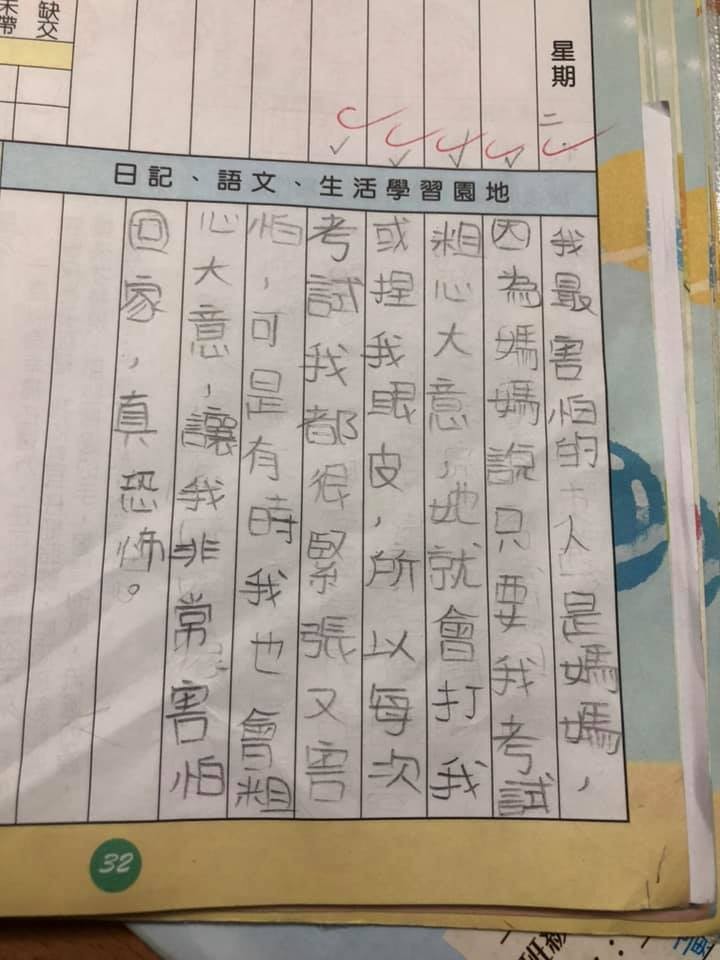 缺交
未帶
星期
二
日記、語文、生活學習園地
我最害怕的人是媽媽，
因為媽媽說只要我考試
粗心大意，她就會打我
或捏我眼皮，所以每次
考試我都很緊張又害
怕，可是有時我也會粗
心大意，讓我非常害怕
回家，真恐怖。
32